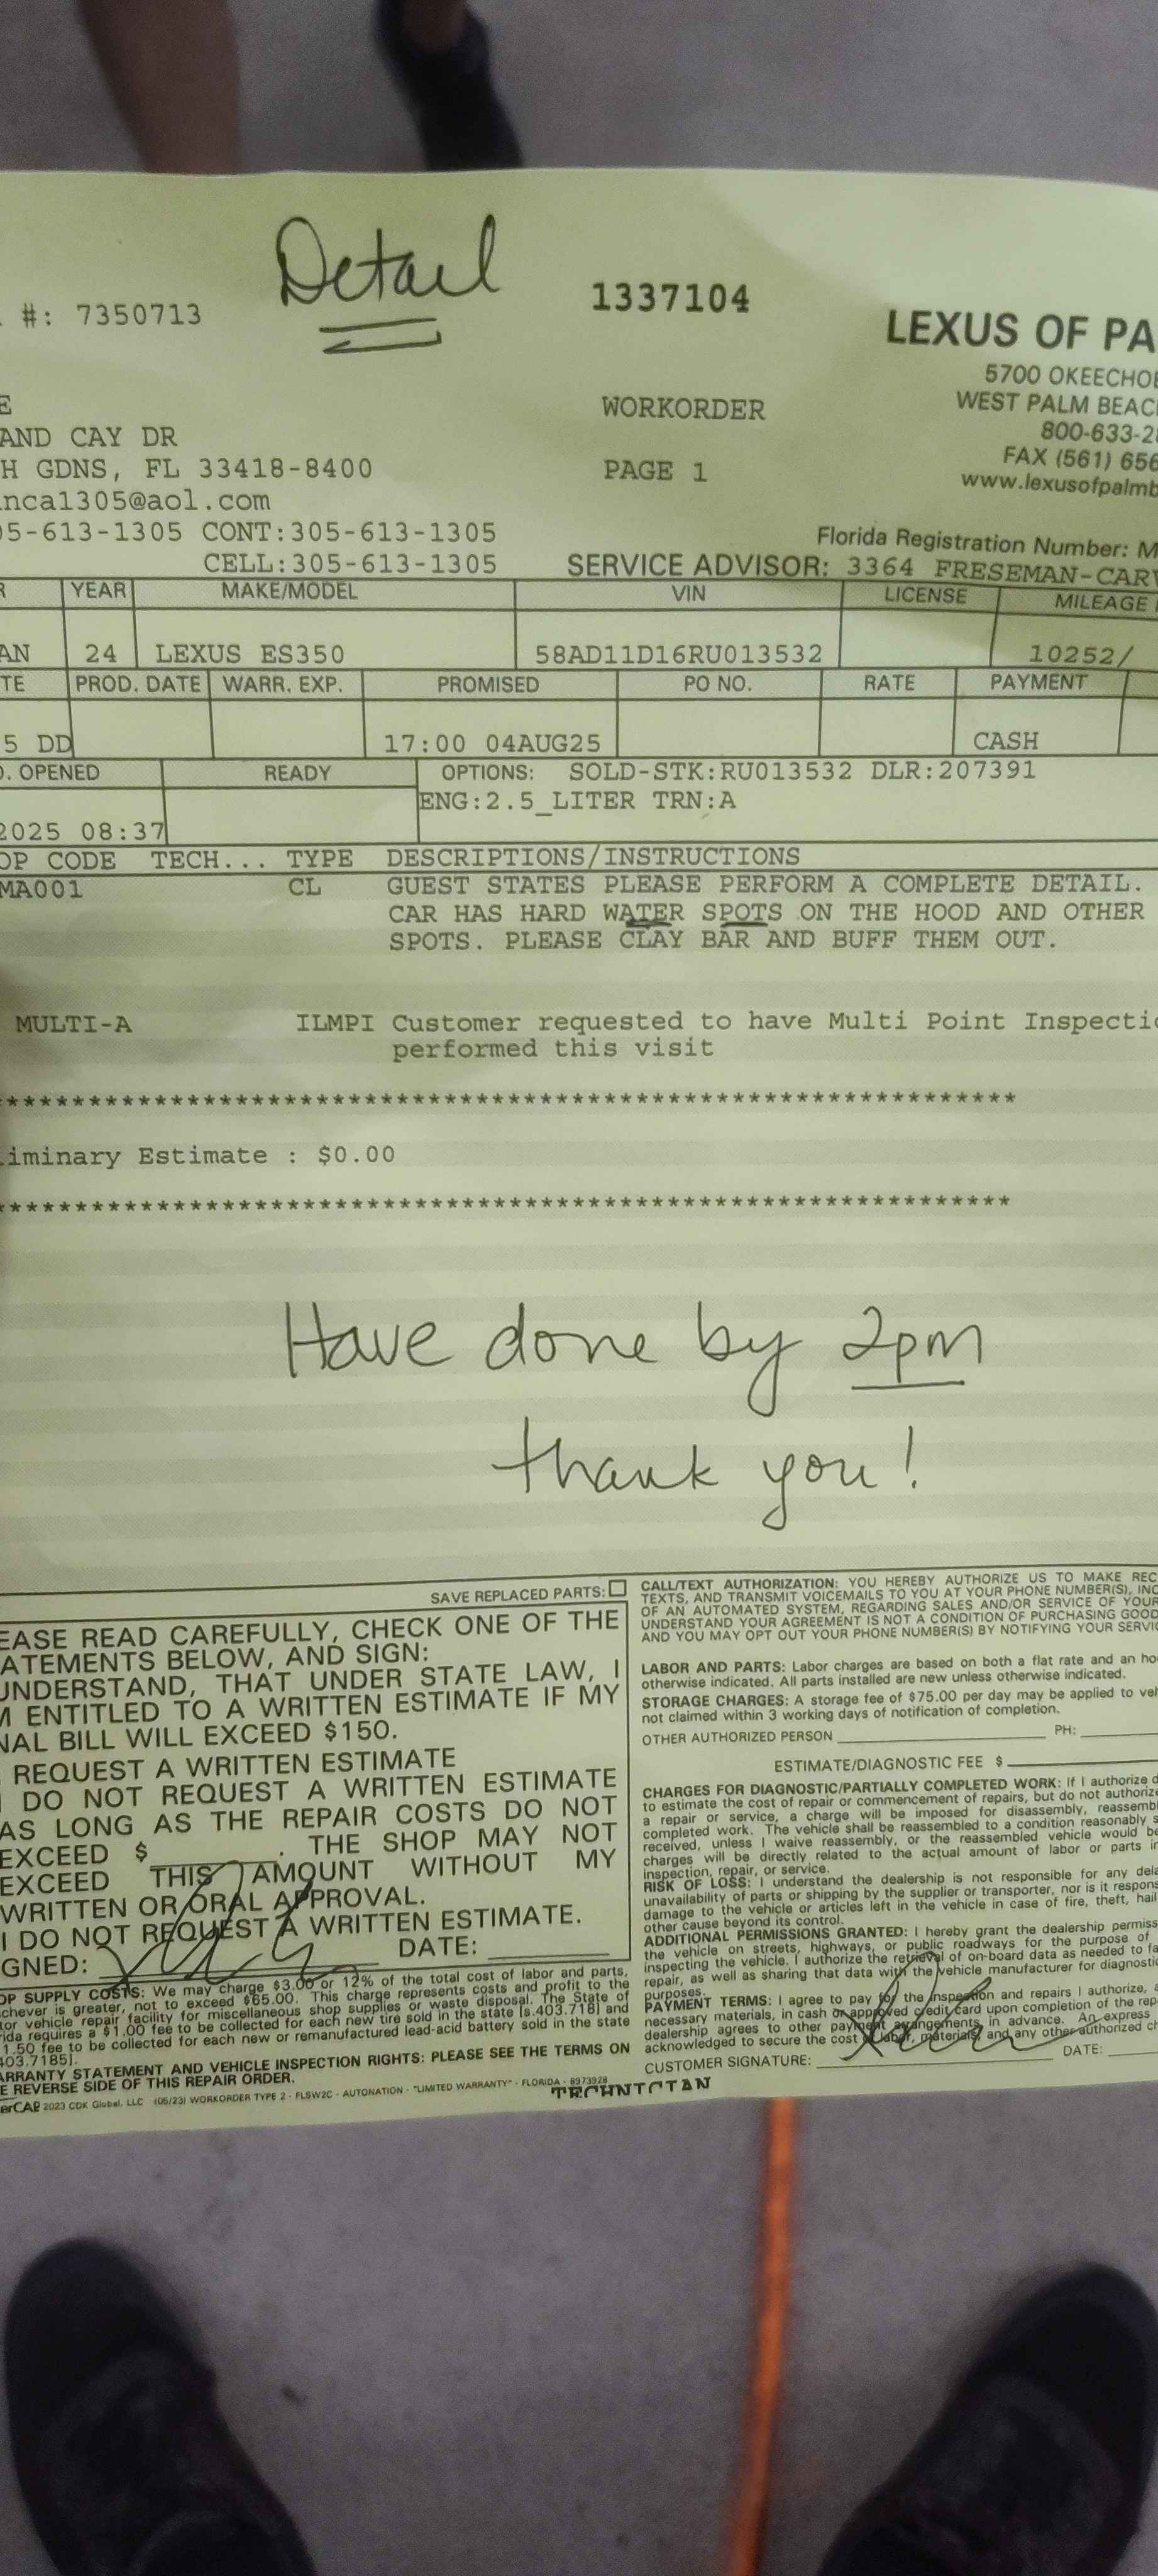 Detail
#: 7350713
1337104
LEXUS OF PA
5700 OKEECHOB
WORKORDER
WEST PALM BEACH
AND CAY DR
800-633-2
H GDNS, FL 33418-8400
PAGE 1
FAX (561) 656
www.lexusofpalmb
nca1305@aol.com
05-613-1305 CONT:305-613-1305
Florida Registration Number: M
CELL:305-613-1305
SERVICE ADVISOR: 3364 FRESEMAN-CARV
YEAR MAKE/MODEL VIN LICENSE MILEAGE
AN 24 LEXUS ES350 58AD11D16RU013532 10252/
TE PROD. DATE WARR. EXP. PROMISED PO NO. RATE PAYMENT
5 DD 17:00 04AUG25 CASH
O. OPENED READY OPTIONS: SOLD-STK:RU013532 DLR:207391
ENG:2.5_LITER TRN:A
2025 08:37
OP CODE TECH... TYPE DESCRIPTIONS/INSTRUCTIONS
MA001 CL GUEST STATES PLEASE PERFORM A COMPLETE DETAIL.
CAR HAS HARD WATER SPOTS ON THE HOOD AND OTHER
SPOTS. PLEASE CLAY BAR AND BUFF THEM OUT.
MULTI-A ILMPI Customer requested to have Multi Point Inspectio
performed this visit
******************************************************************
liminary Estimate : $0.00
******************************************************************
Have done by 2pm
thank you!
SAVE REPLACED PARTS:
EASE READ CAREFULLY, CHECK ONE OF THE
ATEMENTS BELOW, AND SIGN:
UNDERSTAND, THAT UNDER STATE LAW, I
M ENTITLED TO A WRITTEN ESTIMATE IF MY
NAL BILL WILL EXCEED $150.
REQUEST A WRITTEN ESTIMATE
I DO NOT REQUEST A WRITTEN ESTIMATE
AS LONG AS THE REPAIR COSTS DO NOT
EXCEED $________. THE SHOP MAY NOT
EXCEED THIS AMOUNT WITHOUT MY
WRITTEN OR ORAL APPROVAL.
I DO NOT REQUEST A WRITTEN ESTIMATE.
GNED: DATE:
OP SUPPLY COSTS: We may charge $3.00 or 12% of the total cost of labor and parts,
chever is greater, not to exceed $65.00. This charge represents costs and profit to the
tor vehicle repair facility for miscellaneous shop supplies or waste disposal. The State of
rida requires a $1.00 fee to be collected for each new tire sold in the state [s.403.718] and
1.50 fee to be collected for each new or remanufactured lead-acid battery sold in the state
403.7185].
ARRANTY STATEMENT AND VEHICLE INSPECTION RIGHTS: PLEASE SEE THE TERMS ON
E REVERSE SIDE OF THIS REPAIR ORDER.
erCAP 2023 CDK Global, LLC (05/23) WORKORDER TYPE 2 - FLSW2C - AUTONATION - "LIMITED WARRANTY" - FLORIDA - 8973928
CALL/TEXT AUTHORIZATION: YOU HEREBY AUTHORIZE US TO MAKE REC
TEXTS, AND TRANSMIT VOICEMAILS TO YOU AT YOUR PHONE NUMBER(S), INC
OF AN AUTOMATED SYSTEM, REGARDING SALES AND/OR SERVICE OF YOUR
UNDERSTAND YOUR AGREEMENT IS NOT A CONDITION OF PURCHASING GOOD
AND YOU MAY OPT OUT YOUR PHONE NUMBER(S) BY NOTIFYING YOUR SERVIC
LABOR AND PARTS: Labor charges are based on both a flat rate and an ho
otherwise indicated. All parts installed are new unless otherwise indicated.
STORAGE CHARGES: A storage fee of $75.00 per day may be applied to veh
not claimed within 3 working days of notification of completion.
OTHER AUTHORIZED PERSON PH:
ESTIMATE/DIAGNOSTIC FEE $
CHARGES FOR DIAGNOSTIC/PARTIALLY COMPLETED WORK: If I authorize d
to estimate the cost of repair or commencement of repairs, but do not authorize
a repair or service, a charge will be imposed for disassembly, reassembl
completed work. The vehicle shall be reassembled to a condition reasonably s
received, unless I waive reassembly, or the reassembled vehicle would be
charges will be directly related to the actual amount of labor or parts in
inspection, repair, or service.
RISK OF LOSS: I understand the dealership is not responsible for any dela
unavailability of parts or shipping by the supplier or transporter, nor is it respons
damage to the vehicle or articles left in the vehicle in case of fire, theft, hail
other cause beyond its control.
ADDITIONAL PERMISSIONS GRANTED: I hereby grant the dealership permiss
the vehicle on streets, highways, or public roadways for the purpose of
inspecting the vehicle. I authorize the retrieval of on-board data as needed to fa
repair, as well as sharing that data with the vehicle manufacturer for diagnostic
purposes.
PAYMENT TERMS: I agree to pay for the inspection and repairs I authorize, a
necessary materials, in cash or approved credit card upon completion of the rep
dealership agrees to other payment arrangements in advance. An express
acknowledged to secure the cost of labor, materials, and any other authorized ch
CUSTOMER SIGNATURE: DATE:
TECHNICIAN